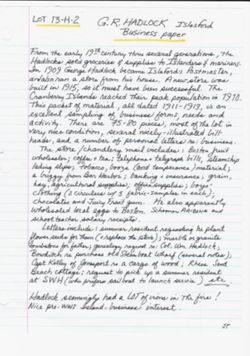 LOT 13-H-2
G.R. HADLOCK Islesford
Business paper
From the early 19th century thru several generations, the
Hadlocks sold groceries & supplies to Islanders & mariners.
In 1909 George Hadlock became Islesford's Postmaster,
and also ran a store from his house. A new store was
built in 1915, so it must have been successful. The
Cranberry Islands reached their peak population in 1910.
This packet of material, all dated 1911-1918, is an
excellent sampling of business forms, needs and
activity. There are 75-80 pieces, most of the lot in
very nice condition, several nicely-illustrated bill-
heads, and a number of personal letters re: business.
The store/chandlery would include: Boston fruit
wholesaler; coffee & tea; telephone & telegraph bills, steamship
lading slips; tobacco, borax (and temperance) material;
a buggy from Bar Harbor; banking & insurance; grain,
hay, agricultural supplies; office supplies; boys
clothing (2 circulars w/ 3 fabric samples in each);
chocolates and Juicy Fruit gum. He also apparently
wholesaled local eggs to Boston. Schooner
and school teacher salary receipts.
Letters include: summer resident requesting he plant
flower seeds for them (& replace the stove); marble or granite
tombstone for father; genealogy request re: Col. Wm Hadlock;
Bowditch re purchase old Steamboat Wharf (several notes);
Capt Kelley of Jonesport re a cargo of wood; Rhese Sand
Beach cottage; request to pick up a summer resident
at SWH (who prefers sailboat to launch service) etc
Hadlock seemingly had a LOT of irons in the fire!
Nice pre-WWI Island-business interest.